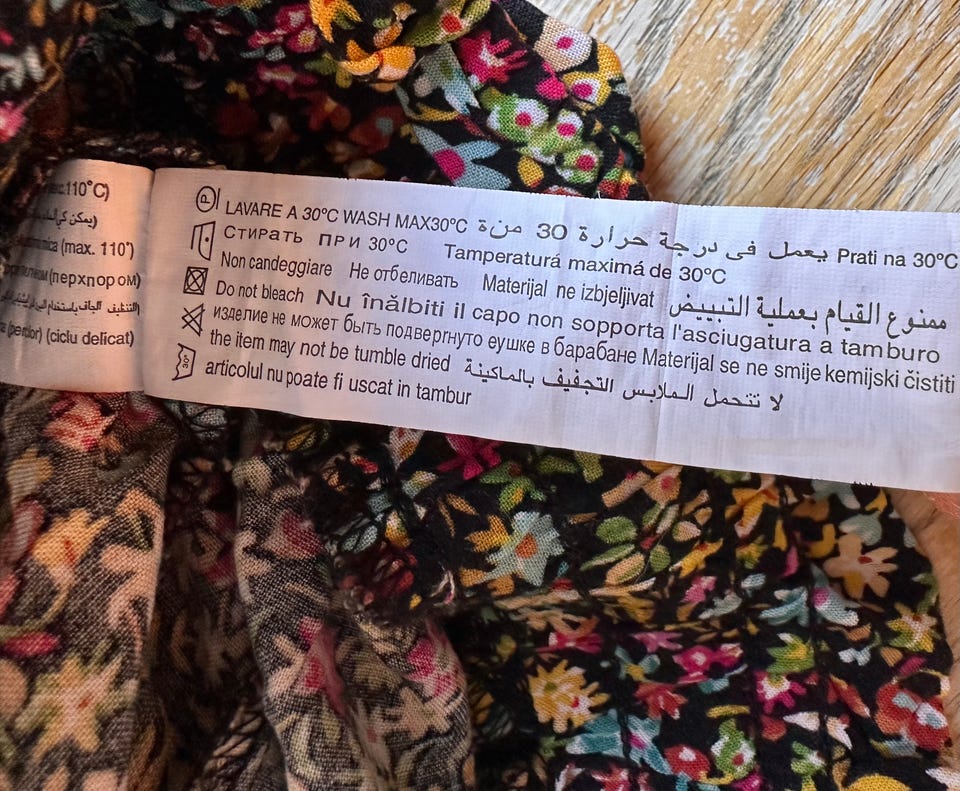 110°C)
(max. 110°)
(перхлором)
(ciclu delicat)
P
LAVARE A 30°C WASH MAX30°C يعمل في درجة حرارة 30 منة Prati na 30°C
Стирать при 30°C Temperatură maximă de 30°C
Non candeggiare Не отбеливать Materijal ne izbjeljivat ممنوع القيام بعملية التبييض
Do not bleach Nu înălbiti il capo non sopporta l'asciugatura a tamburo
изделие не может быть подвергнуто еушке в барабане Materijal se ne smije kemijski čistiti
the item may not be tumble dried لا تتحمل الملابس التجفيف بالماكينة
articolul nu poate fi uscat in tambur
30°